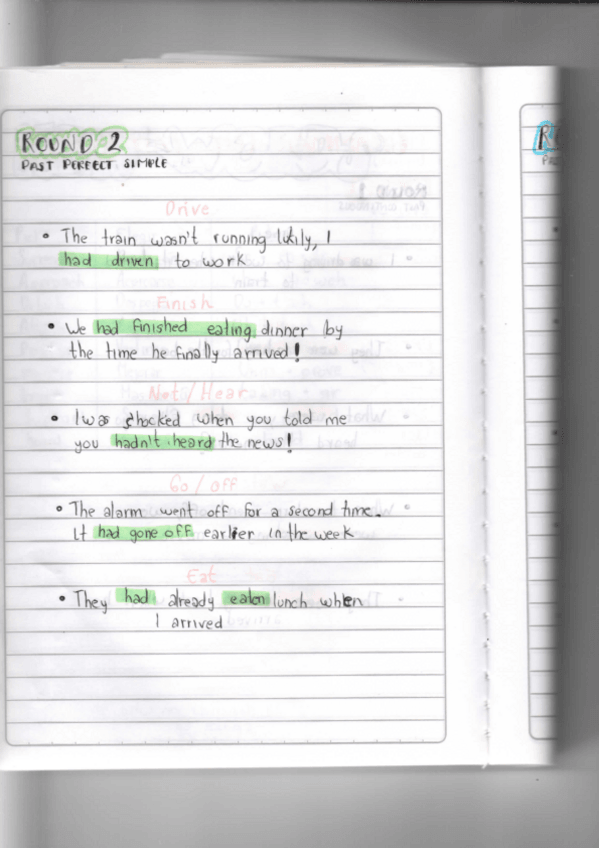 ROUND 2
PAST PERFECT SIMPLE
Drive
• The train wasn't running likily, I
had driven to work
Finish
• We had finished eating dinner by
the time he finally arrived!
Not/Hear
• I was shocked when you told me
you hadn't heard the news!
Go/off
• The alarm went off for a second time.
It had gone off earlier in the week
Eat
• They had already eaten lunch when
I arrived